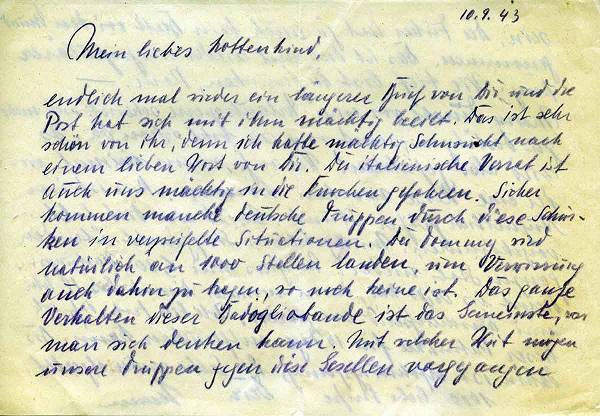 10.9.43
Mein liebes Mottenkind,
endlich mal wieder ein längerer Brief von Dir und die
Post hat sich mit ihm mächtig beeilt. Das ist sehr
schön von ihr, denn ich hatte mächtig Sehnsucht nach
einem lieben Wort von Dir. Der italienische Verrat ist
auch uns mächtig in die Knochen gefahren. Sicher
kommen manche deutsche Truppen durch diese Schur-
ken in verzweifelte Situationen. Der Tommy wird
natürlich an 1000 Stellen landen, um Verwirrung
auch dahin zu tragen, wo noch keine ist. Das ganze
Verhalten dieser Badogliobande ist das Gemeinste, was
man sich denken kann. Mit welcher Wut mögen
unsere Truppen gegen diese Gesellen vorgegangen